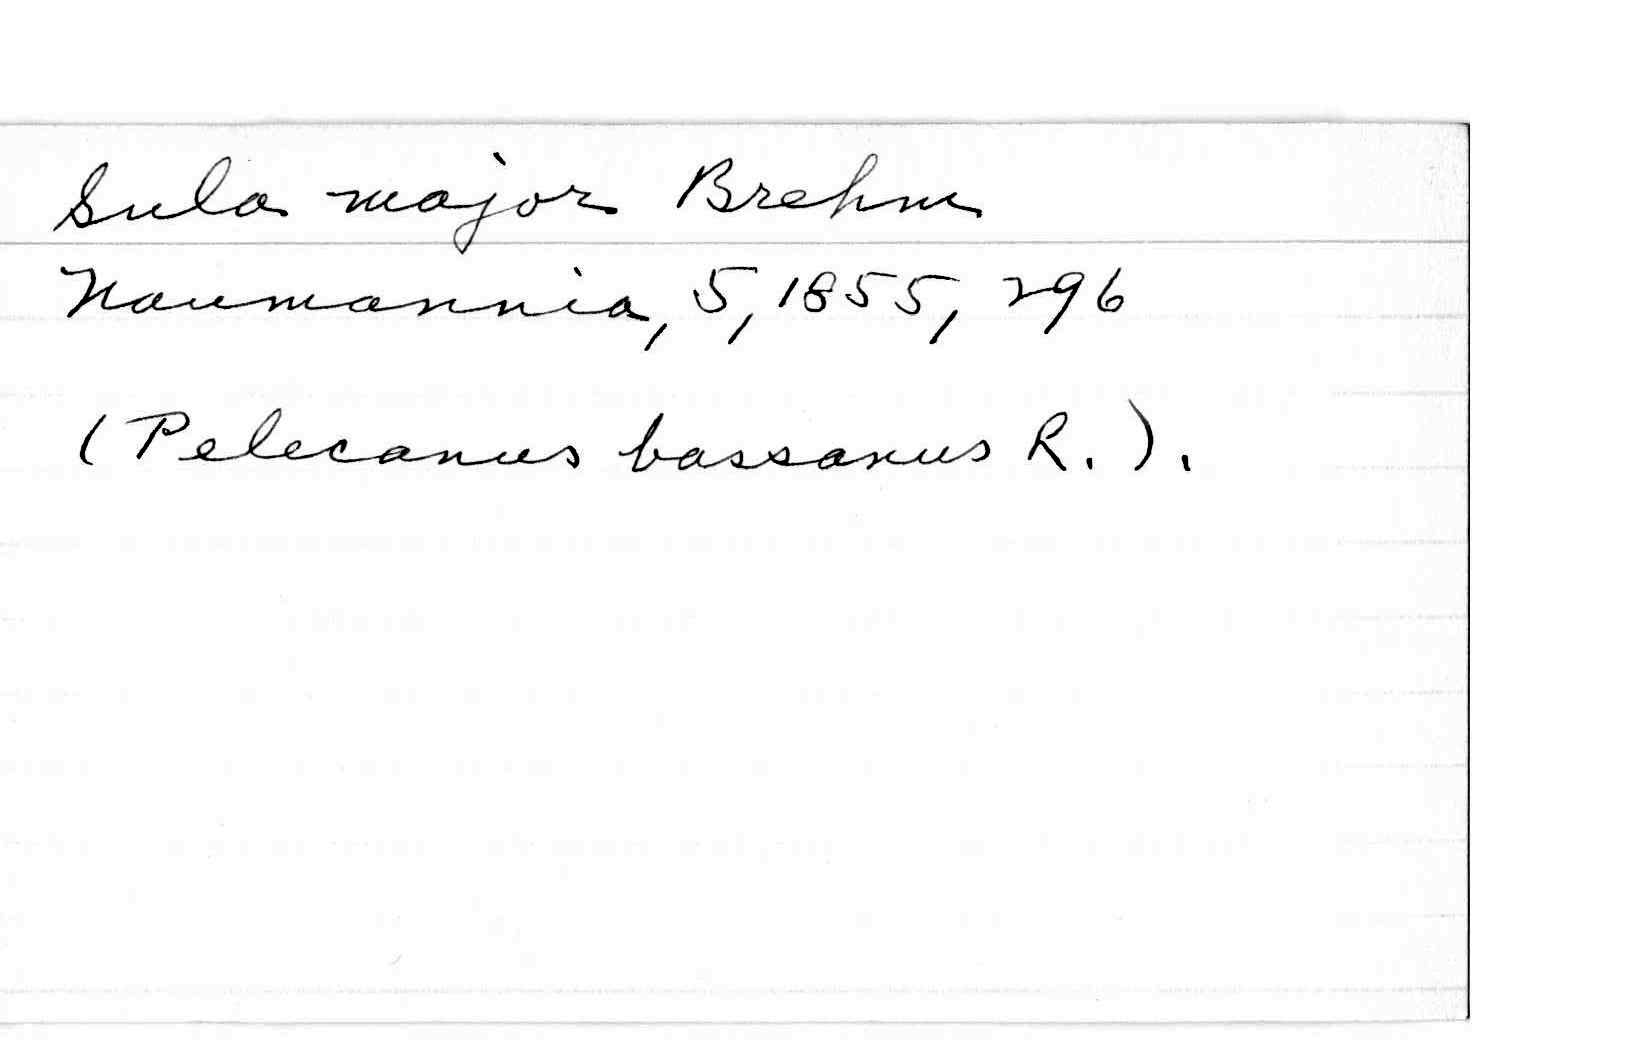 Sula major Brehm
Naumannia, 5, 1855, 296
(Pelecanus bassanus R.).